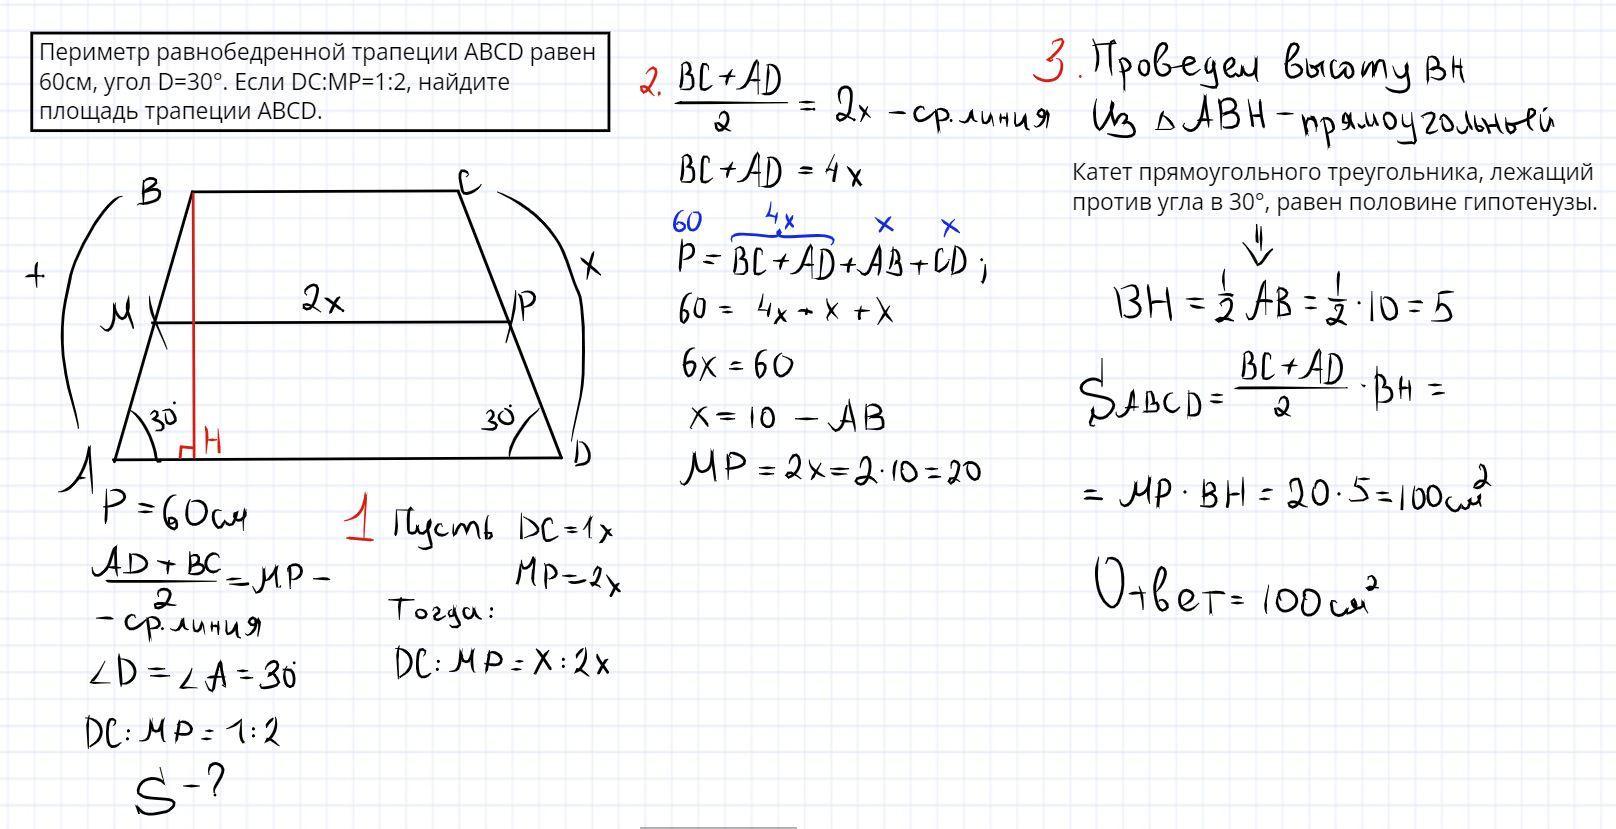 Периметр равнобедренной трапеции ABCD равен
60см, угол D=30°. Если DC:MP=1:2, найдите
площадь трапеции ABCD.
B
C
x
x
M
2x
P
30°
30°
H
A
D
P = 60см
AD + BC / 2 = MP -
- ср. линия
∠D = ∠A = 30°
DC : MP = 1 : 2
S - ?
1 Пусть DC = 1x
MP = 2x
Тогда:
DC : MP = x : 2x
2. BC + AD / 2 = 2x - ср. линия
BC + AD = 4x
60 4x x x
P = BC + AD + AB + CD ;
60 = 4x + x + x
6x = 60
x = 10 - AB
MP = 2x = 2·10 = 20
3. Проведем высоту BH
Из △ABH - прямоугольный
Катет прямоугольного треугольника, лежащий
против угла в 30°, равен половине гипотенузы.
⇓
BH = 1/2 AB = 1/2 · 10 = 5
S ABCD = BC + AD / 2 · BH =
= MP · BH = 20 · 5 = 100см²
Ответ = 100 см²